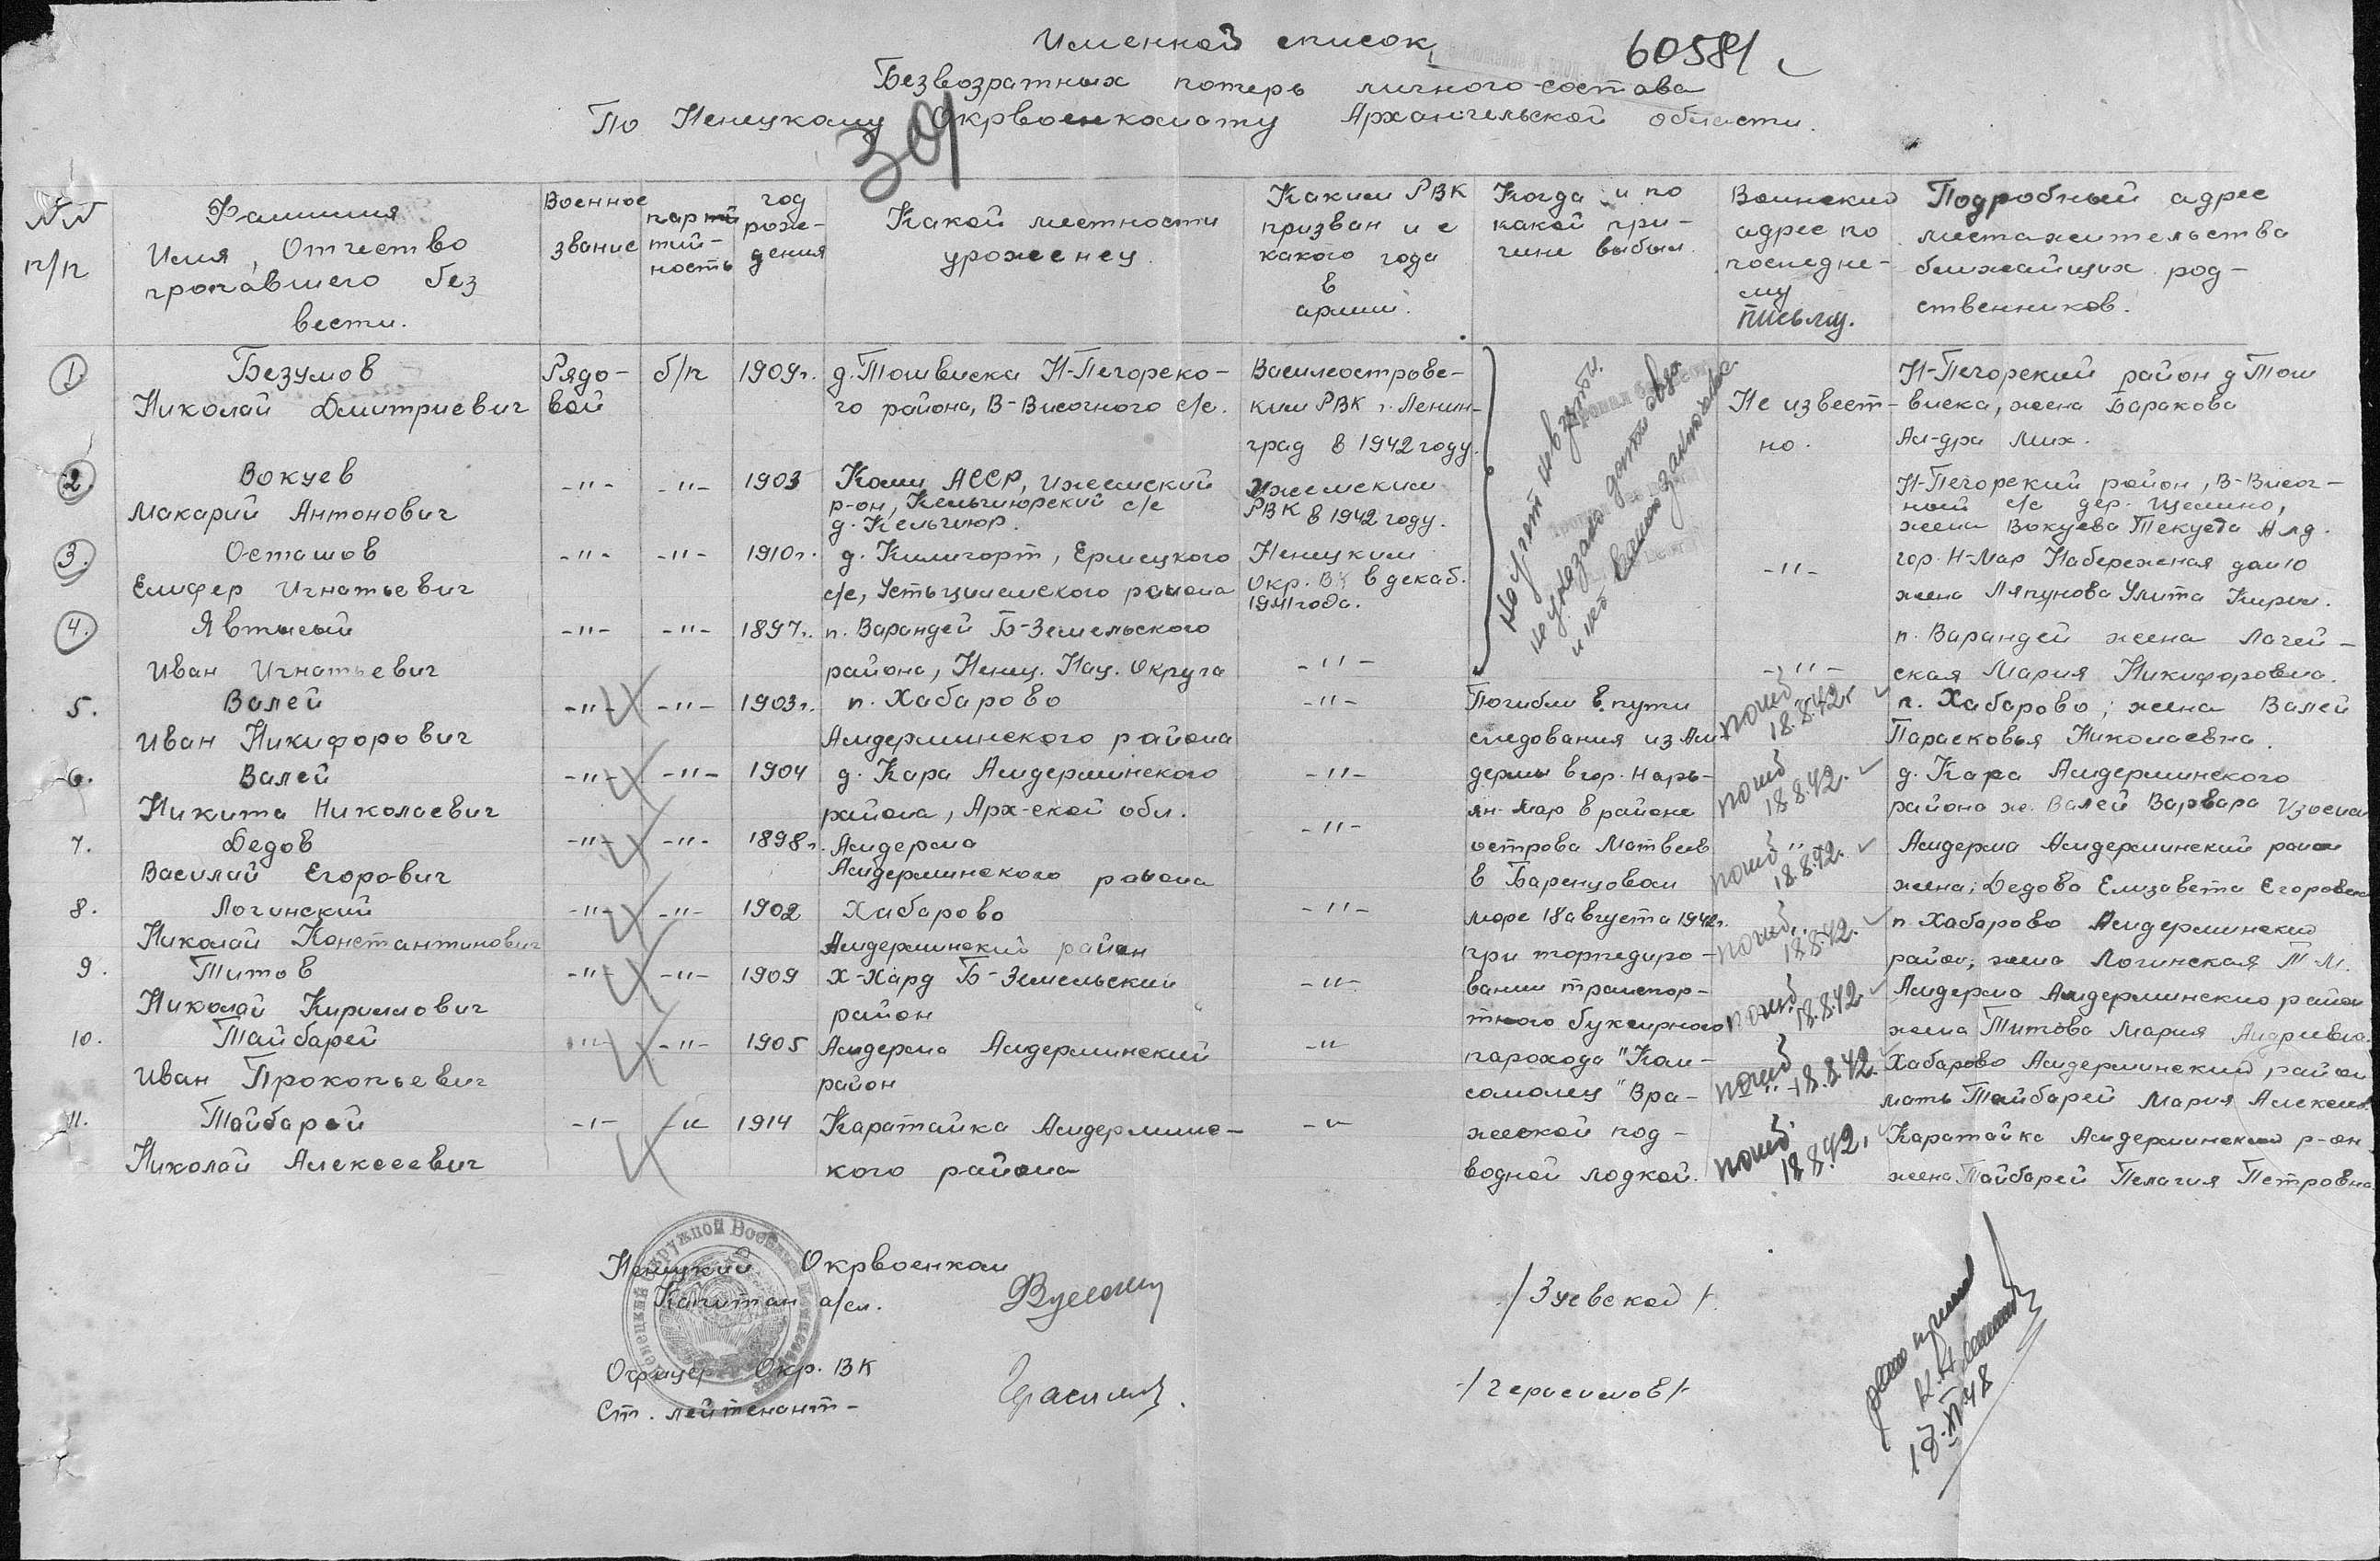 Именной список
60581
Безвозратных потерь личного состава
По Ненецкому Окрвоенкомату Архангельской области.
309
№№ п/п
Фамилия Имя, Отчество пропавшего без вести.
Военное звание
партийность
год рождения
Какой местности уроженец.
Каким РВК призван и с какого года в армии.
Когда и по какой причине выбыл.
Воинский адрес по последнему письму.
Подробный адрес местажительства ближайших родственников.
1. Безумов Рядо- б/п 1909г. д. Тошвиска Н-Печорско- Василеостровс- Н-Печорский район д Тош
Николай Дмитриевич вой го района, В-Височного с/с. ким РВК г. Ленин- Не извест- виска, жена Баракова
град в 1942 году. но. Ал-дра Мих.
2. Вокуев -"- -"- 1903 Коми АССР, Ижемский Ижемским Н-Печорский район, В-Височ-
Макарий Антонович р-он, Кельчиюрский с/с РВК в 1942 году. ный с/с дер. Щелино,
д. Кельчиюр. жена Вокуева Текуста
3. Осташов -"- -"- 1910г. д. Климгорт, Ермецкого Ненецким -"- гор. Н-Мар Набережная дом 10
Елифер Игнатьевич с/с, Устьцилемского района Окр. ВК в декаб. 1941 года. жена Ляпунова Улита Кирил.
4. Явтысый -"- -"- 1897г. п. Варандей Б-Земельского п. Варандей жена Лагей-
Иван Игнатьевич района, Ненец. Нац. Округа -"- -"- ская Мария Никифоровна.
На учет не взяты. не указано дата связи
5. Валей -"- -"- 1903г. п. Хабарово -"- Погибли в пути погиб п. Хабарово; жена Валей
Иван Никифорович Амдерминского района следования из Ам- 18.8.42г Парасковья Николаевна.
6. Валей -"- -"- 1904 д. Кара Амдерминского -"- дермы в гор. Нарь- погиб д. Кара Амдерминского
Никита Николаевич района, Арх-ской обл. ян-Мар в районе 18.8.42. района ж. Валей Варвара
7. Дедов -"- -"- 1898г. Амдерма -"- острова Матвеев погиб Амдерма Амдерминский район
Василий Егорович Амдерминского района в Баренцовом 18.8.42. жена; Дедова Елизавета Егоровна
8. Логинский -"- -"- 1902 Хабарово -"- море 18 августа 1942г. погиб п Хабарово Амдерминский
Николай Константинович Амдерминский район при торпедиро- 18.8.42. район; жена Логинская Т.М.
9. Титов -"- -"- 1909 Х-Хард Б-Земельский -"- вании транспор- погиб Амдерма Амдерминский район
Николай Кириллович район тного буксирного 18.8.42 жена Титова Мария Андреевна
10. Тайбарей -"- -"- 1905 Амдерма Амдерминский -" парохода "Ком- погиб Хабарово Амдерминский район
Иван Прокопьевич район сомолец" Вра- 18.8.42 мать Тайбарей Мария Алексеев.
11. Тайбарей -"- -"- 1914 Каратайка Амдерминс- -"- жеской под- погиб Каратайка Амдерминский р-он
Николай Алексеевич кого района водной лодкой. 18.8.42. жена Тайбарей Пелагия Петровна
Ненецкий Окрвоенком
Капитан а/сл. /Зуевской/.
Офицер Окр. ВК
Ст. лейтенант - /Герасимов/